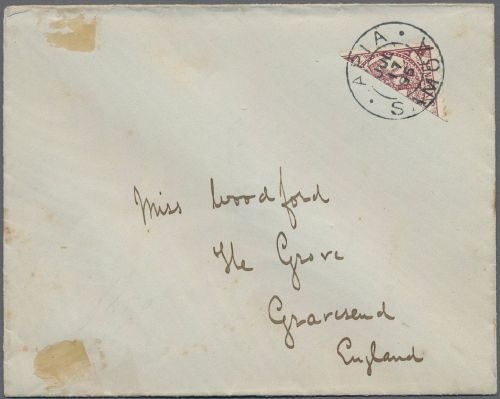 APIA • SAMOA •
Miss Woodford
The Grove
Gravesend
England